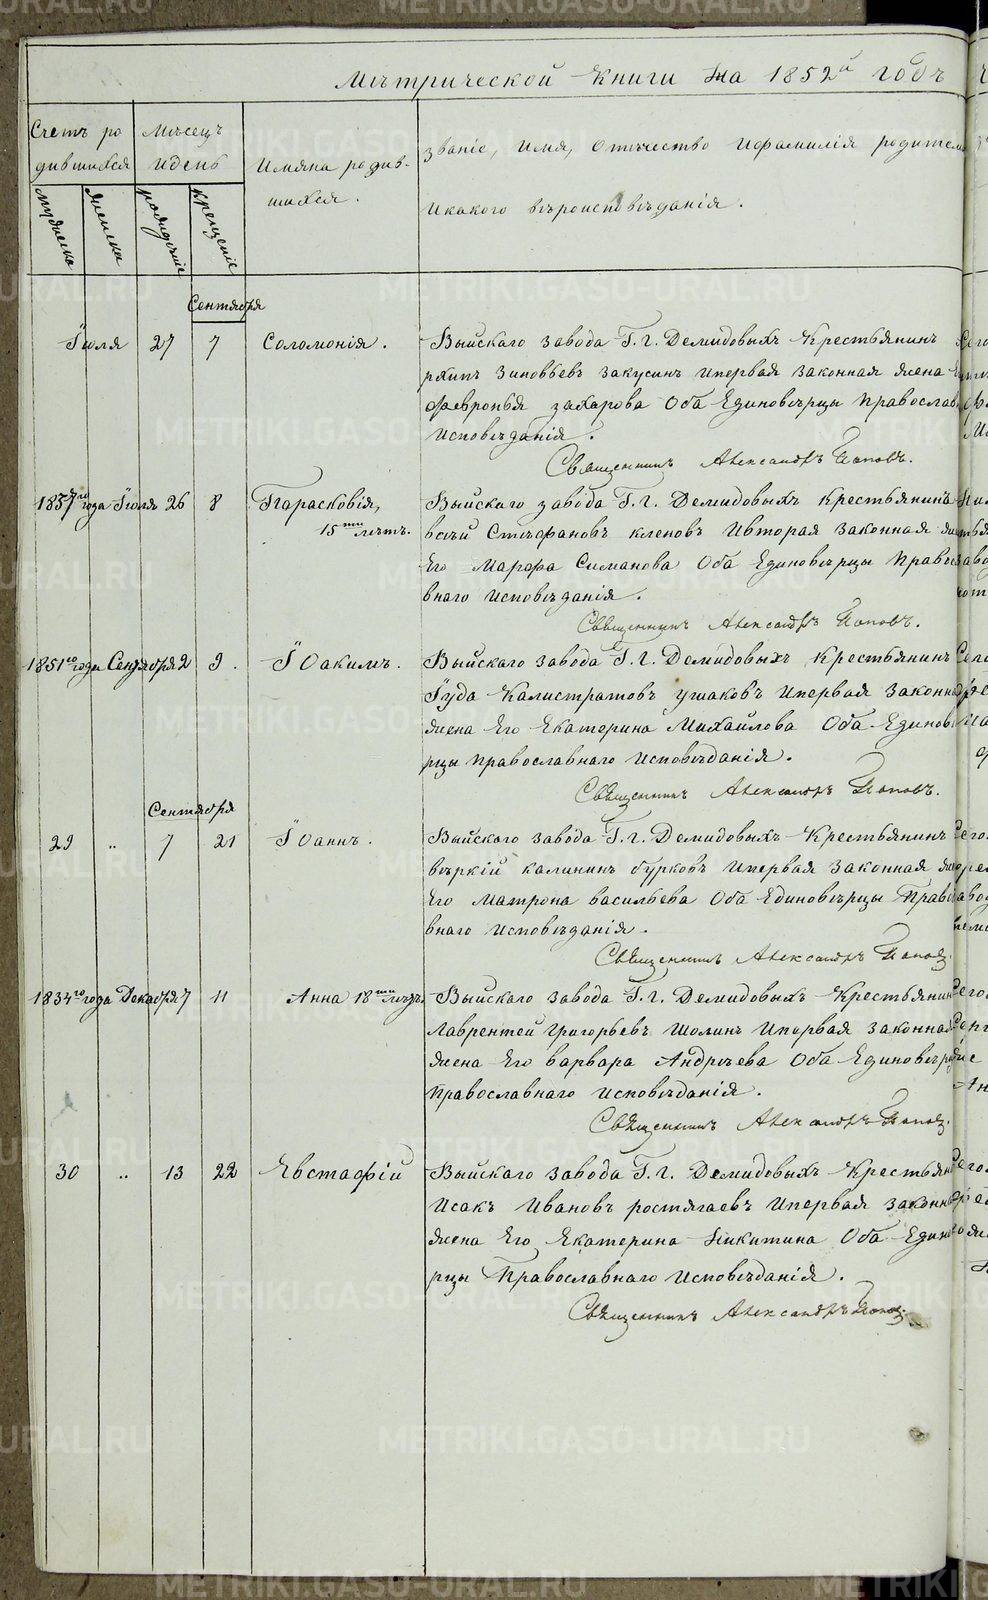 Мѣтрической Книги На 1852й годъ
Счетъ ро
дившихся
мужеска
женска
Мѣсецъ
и день
рождение
крещение
Имяна родив-
шихся.
Званіе, Имя, Отечество И фамилія родителей
И какого вѣроисповѣданія.
Сентября
Іюля 27 7 Соломонія. Выйскаго завода Г. г. Демидовыхъ Крестьянинъ
рхипъ Зиновьевъ Закусинъ и первая законная жена
Февронья Захарова Оба Единовѣрцы Православ
Исповѣданія.
Священникъ Александръ Поповъ.
1837го года Іюля 26 8 Парасковія, Выйскаго завода Г. г. Демидовыхъ Крестьянинъ
15ти лѣтъ.
Стефановъ кленовъ И вторая законная
Его Марфа Симанова Оба Единовѣрцы Правосл
внаго Исповѣданія.
Священникъ Александръ Поповъ.
1851го года Сентября 2 9. Іоакимъ. Выйскаго завода Г. г. Демидовыхъ Крестьянинъ
Іуда Калистратовъ ушаковъ и первая законна
жена Его Екатерина Михайлова Оба Единовѣ
рцы православнаго исповѣданія.
Священникъ Александръ Поповъ.
Сентября
29 " 7 21 Іоаннъ. Выйскаго завода Г. г. Демидовыхъ Крестьянинъ
вѣркій калининъ бурковъ и первая законная
Его Матрона васильева Оба Единовѣрцы Право
внаго исповѣданія.
Священникъ Александръ Попов
1834го года Декабря 7 11 Анна 18ти лѣтъ Выйскаго завода Г. г. Демидовыхъ Крестьянин
Лаврентей Григорьевъ Шолинъ и первая законная
жена Его варвара Андрѣева Оба Единовѣр
Православнаго исповѣданія.
Священникъ Александръ Попов
30 " 13 22 Евстафій Выйскаго завода Г. г. Демидовыхъ Крестьян
Исакъ Ивановъ ростягаевъ и первая законн
жена Его Екатерина Никитина Оба Един
рцы Православнаго исповѣданія.
Священникъ Александръ Попов
METRIKI.GASO-URAL.RU